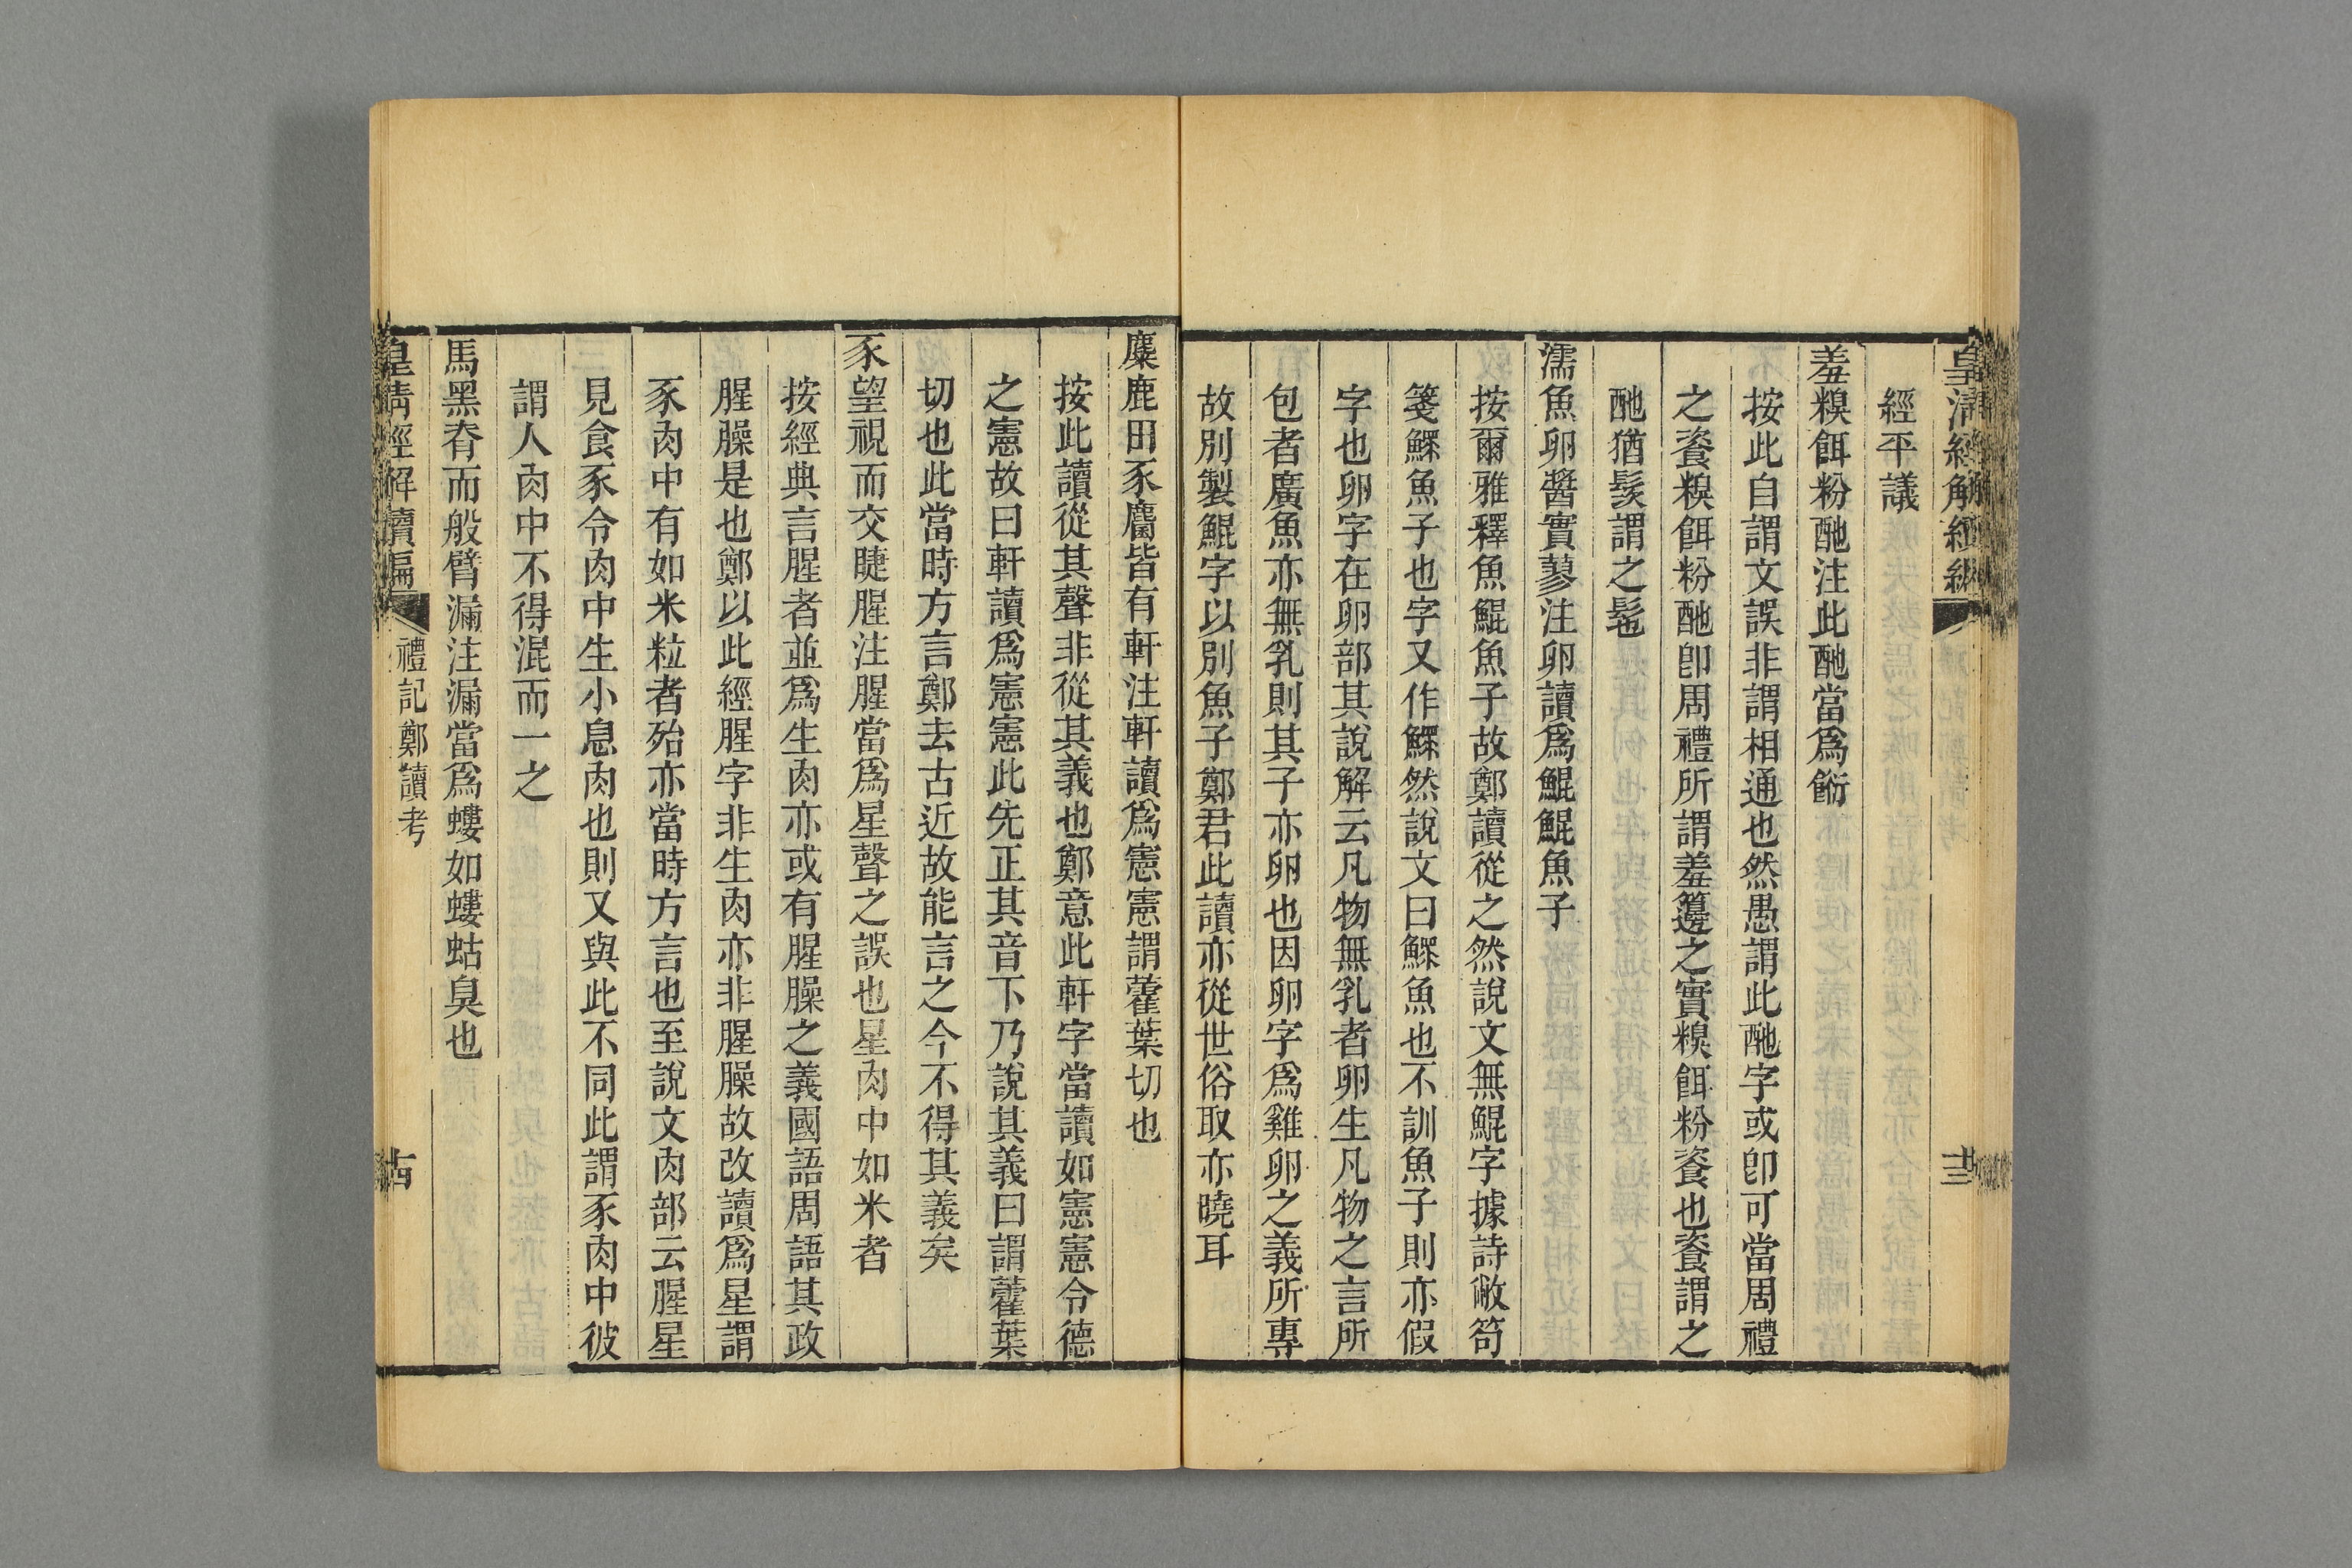 皇清經解續編
十三
經平議
羞糗餌粉酏注此酏當爲餰
按此自謂文誤非謂相通也然愚謂此酏字或卽可當周禮
之餈糗餌粉酏卽周禮所謂羞籩之實糗餌粉餈也餈謂之
酏猶髮謂之髢
濡魚卵醬實蓼注卵讀爲鯤鯤魚子
按爾雅釋魚鯤魚子故鄭讀從之然說文無鯤字據詩敝笱
箋鰥魚子也字又作鰥然說文曰鰥魚也不訓魚子則亦假
字也卵字在卵部其說解云凡物無乳者卵生凡物之言所
包者廣魚亦無乳則其子亦卵也因卵字爲雞卵之義所專
故別製鯤字以別魚子鄭君此讀亦從世俗取亦曉耳
麋鹿田豕麕皆有軒注軒讀爲憲憲謂藿葉切也
按此讀從其聲非從其義也鄭意此軒字當讀如憲憲令德
之憲故曰軒讀爲憲憲此先正其音下乃說其義曰謂藿葉
切也此當時方言鄭去古近故能言之今不得其義矣
豕望視而交睫腥注腥當爲星聲之誤也星肉中如米者
按經典言腥者並爲生肉亦或有腥臊之義國語周語其政
腥臊是也鄭以此經腥字非生肉亦非腥臊故改讀爲星謂
豕肉中有如米粒者殆亦當時方言也至說文肉部云腥星
見食豕令肉中生小息肉也則又與此不同此謂豕肉中彼
謂人肉中不得混而一之
馬黑脊而般臂漏注漏當爲螻如螻蛄臭也
皇清經解續編
禮記鄭讀考
古